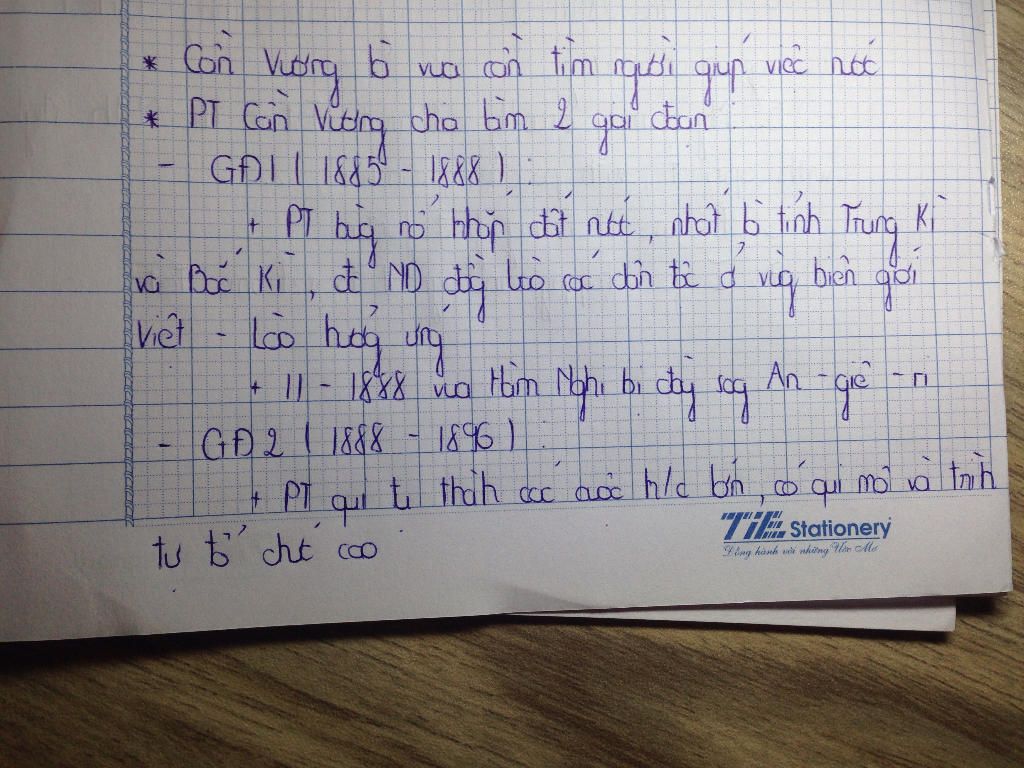 * Cần Vương là vua cần tìm người giúp việc nước
* PT Cần Vương chia làm 2 giai đoạn :
- GĐ1 ( 1885 - 1888 ) :
+ PT bùng nổ khắp đất nước, nhất là tỉnh Trung Kì
và Bắc Kì, đc ND đồng bào các dân tộc ở vùng biên giới
Việt - Lào hưởng ứng
+ 11 - 1888 vua Hàm Nghi bị đày sang An - giê - ri
- GĐ2 ( 1888 - 1896 ) :
+ PT qui tụ thành các cuộc k/c lớn, có qui mô và trình
độ tổ chức cao
TiE Stationery
Đồng hành với những Ước Mơ